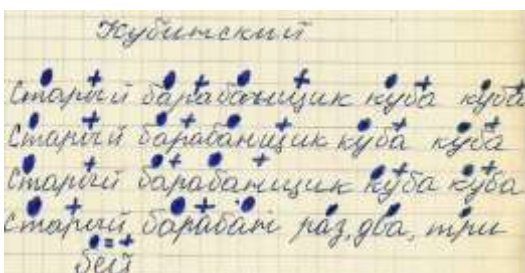 Кубинский
Старый барабанщик куба куба
Старый барабанщик куба куба
Старый барабанщик куба куба
Старый барабан раз, два, три
бей